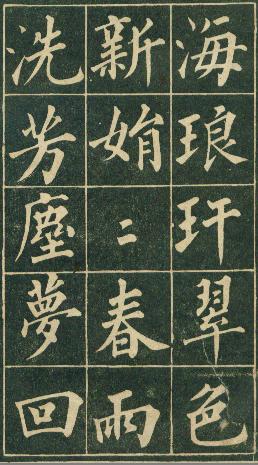 海琅玕翠色
新娟二春雨
洗芳塵夢回